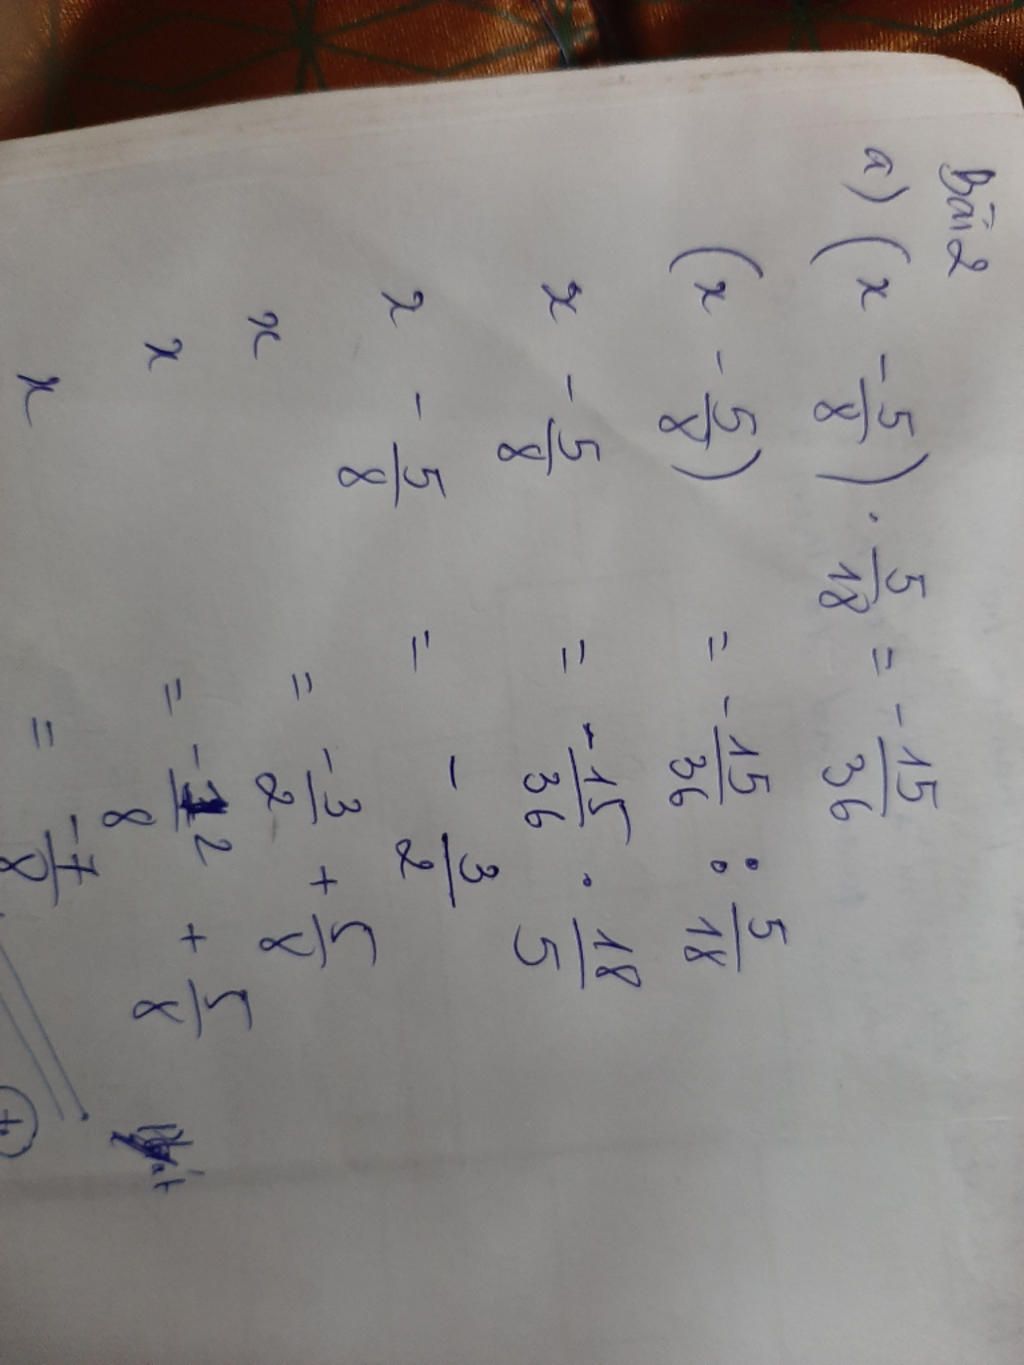 Bài 2
a) (x - 5/8) . 5/18 = - 15/36
(x - 5/8) = - 15/36 : 5/18
x - 5/8 = - 15/36 . 18/5
x - 5/8 = - 3/2
x = - 3/2 + 5/8
x = - 12/8 + 5/8
x = -7/8